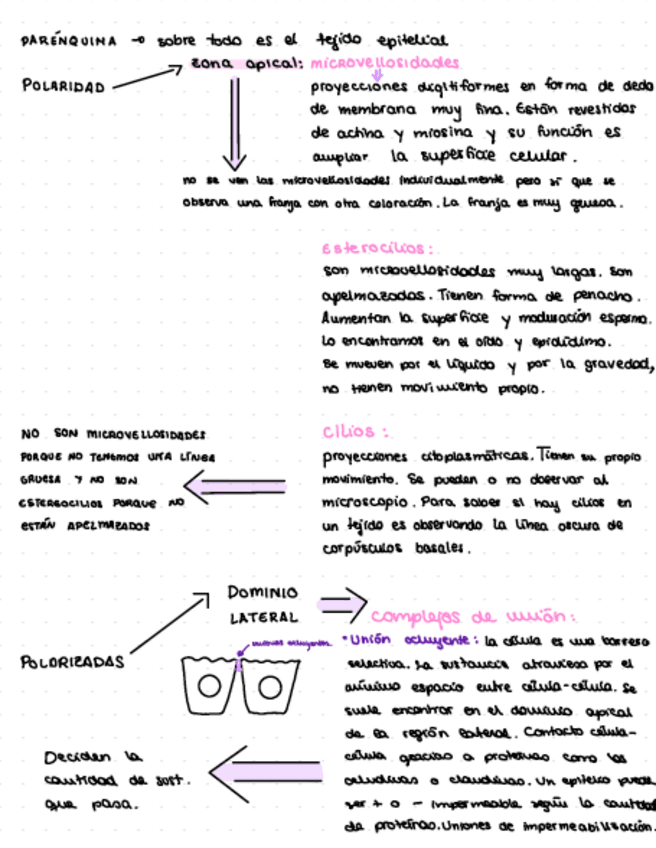 PARÉNQUINA → sobre todo es el tejido epitelial
POLARIDAD
zona apical: microvellosidades
proyecciones digitiformes en forma de dedo
de membrana muy fina. Están revestidas
de actina y miosina y su función es
ampliar la superficie celular.
no se ven las microvellosidades individualmente pero sí que se
observa una franja con otra coloración. La franja es muy gruesa.
Esterocilios:
son microvellosidades muy largas. Son
apelmazadas. Tienen forma de penacho.
Aumentan la superficie y maduración esperma.
Lo encontramos en el oído y epidídimo.
Se mueven por el líquido y por la gravedad,
no tienen movimiento propio.
Cilios:
proyecciones citoplasmáticas. Tienen su propio
movimiento. Se pueden o no observar al
microscopio. Para saber si hay cilios en
un tejido es observando la línea oscura de
corpúsculos basales.
NO SON MICROVELLOSIDADES
PORQUE NO TENEMOS UNA LÍNEA
GRUESA Y NO SON
ESTEREOCILIOS PORQUE NO
ESTÁN APELMAZADOS
POLORIZADAS
DOMINIO
LATERAL
uniones ocluyentes
complejos de unión:
• Unión ocluyente: la célula es una barrera
selectiva. La sustancia atraviesa por el
mínimo espacio entre célula-célula. Se
suele encontrar en el dominio apical
de la región lateral. Contacto célula-
célula gracias a proteínas como las
ocludinas o claudinas. Un epitelio puede
ser + o - impermeable según la cantidad
de proteínas. Uniones de impermeabilización.
Deciden la
cantidad de sust.
que pasa.